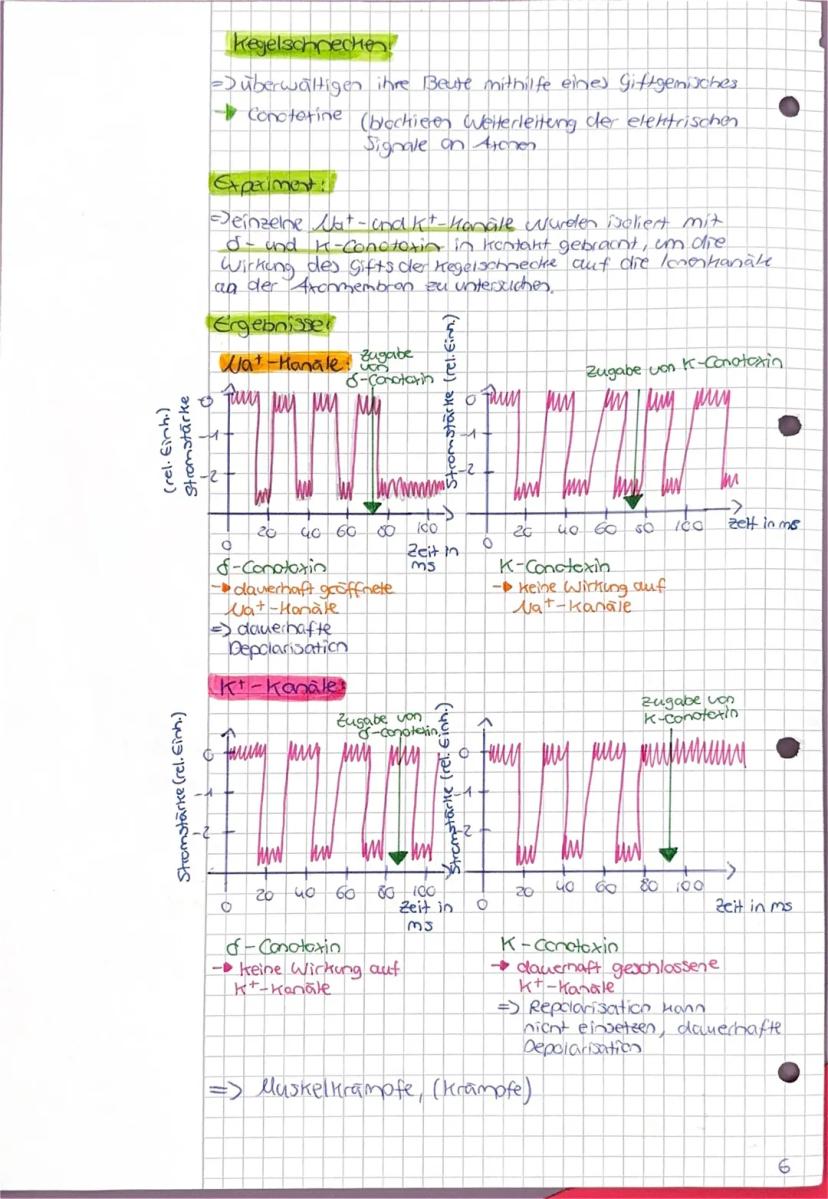 Kegelschnecken:
=> überwältigen ihre Beute mithilfe eines Giftgemisches
→ Conotoxine (blockieren Weiterleitung der elektrischen
Signale an Axonen
Experiment:
=> einzelne Na⁺- und K⁺-Kanäle wurden isoliert mit
δ- und K-Conotoxin in Kontakt gebracht, um die
Wirkung des Gifts der Kegelschnecke auf die Ionenkanäle
an der Axonmembran zu untersuchen.
Ergebnisse:
Na⁺-Kanäle:
Zugabe
von
δ-Conotoxin
Stromstärke
(rel. Einh.)
0
-1
-2
0
20
40
60
80
100
Zeit in
ms
Zugabe von K-Conotoxin
Stromstärke (rel. Einh.)
0
-1
-2
0
20
40
60
80
100
Zeit in ms
δ-Conotoxin
→ dauerhaft geöffnete
Na⁺-Kanäle
=> dauerhafte
Depolarisation
K-Conotoxin
→ keine Wirkung auf
Na⁺-Kanäle
K⁺-Kanäle:
Zugabe von
δ-Conotoxin
Stromstärke (rel. Einh.)
0
-1
-2
0
20
40
60
80
100
Zeit in
ms
Zugabe von
K-Conotoxin
Stromstärke (rel. Einh.)
0
-1
-2
0
20
40
60
80
100
Zeit in ms
δ-Conotoxin
→ keine Wirkung auf
K⁺-Kanäle
K-Conotoxin
→ dauerhaft geschlossene
K⁺-Kanäle
=> Repolarisation kann
nicht einsetzen, dauerhafte
Depolarisation
=> Muskelkrämpfe, (Krämpfe)
6